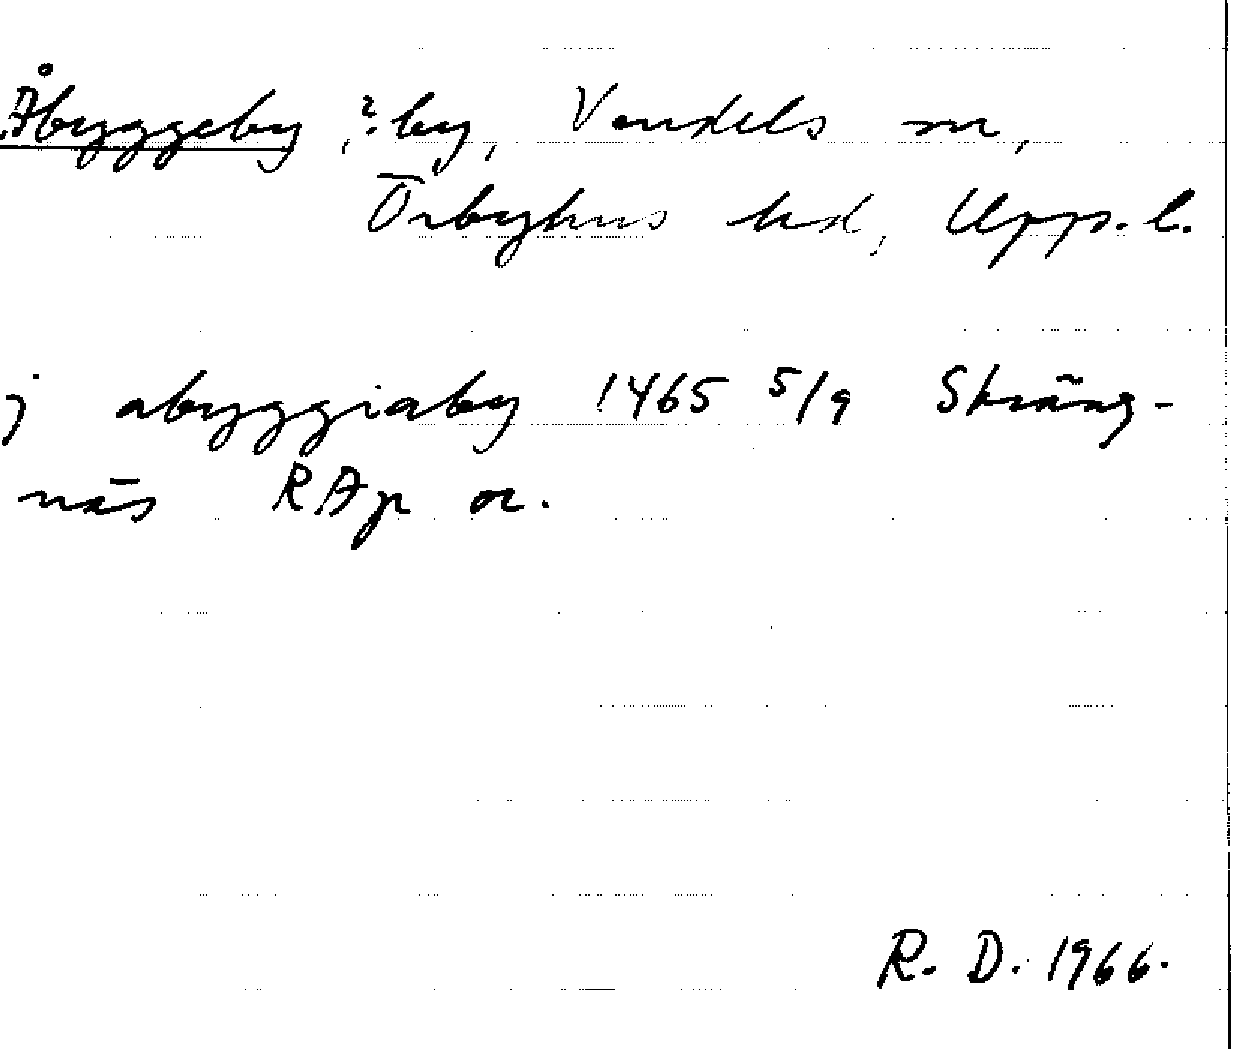 Åbyggeby, ?by, Vendels sn,
Örbyhus hd, Uppl.
j abyggiaby 1465 5/9 Sträng-
näs RAp or.
R. D. 1966.